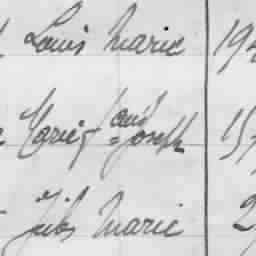 Louis Marie 19
Marie Joseph 15
Jules Marie 2